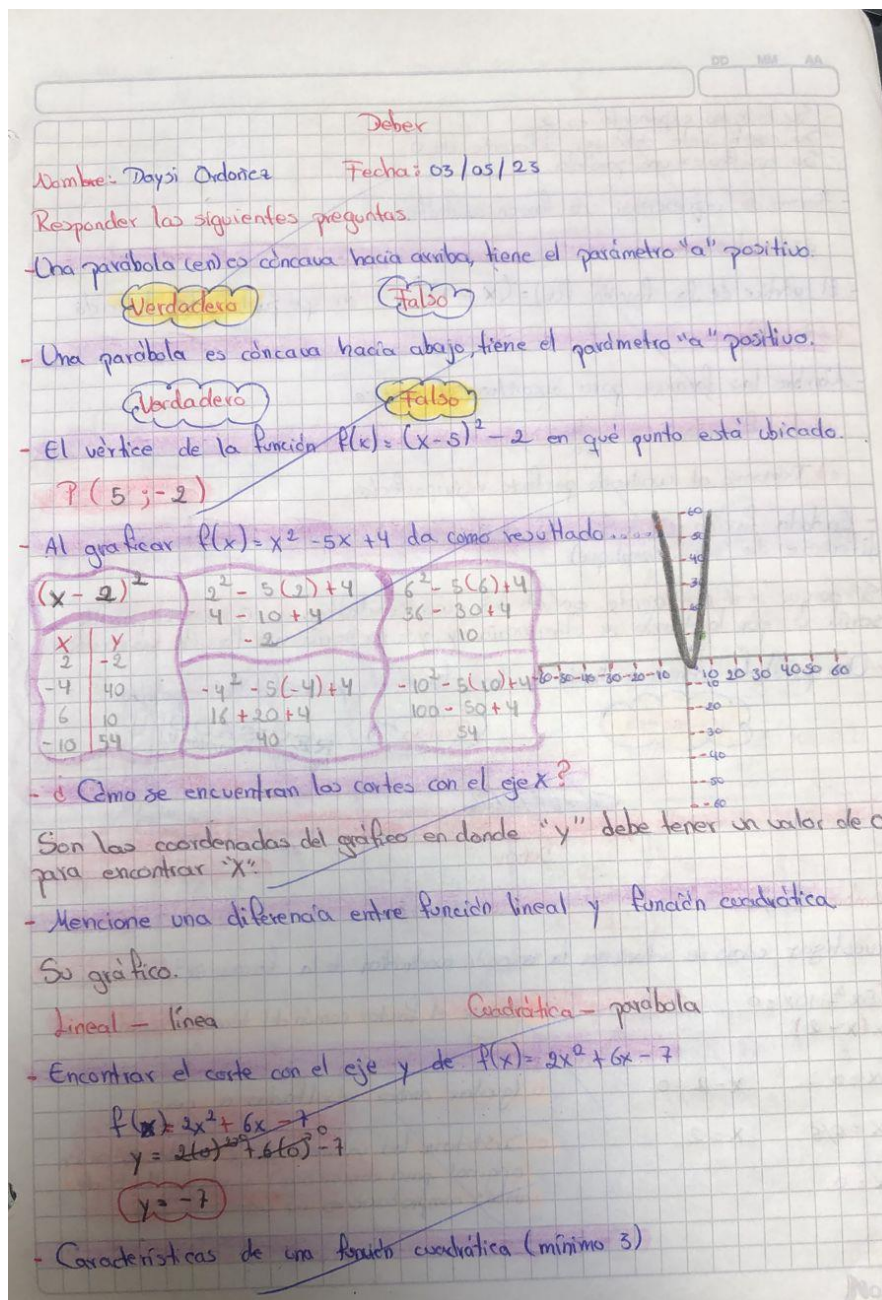 DD MM AA
Deber
Nombre: Daysi Ordoñez Fecha: 03/05/23
Responder las siguientes preguntas.
- Una parábola (en) es cóncava hacia arriba, tiene el parámetro "a" positivo.
Verdadero Falso
- Una parábola es cóncava hacia abajo, tiene el parámetro "a" positivo.
Verdadero Falso
- El vértice de la función f(x) = (x-5)² - 2 en qué punto está ubicado.
P (5 ; -2)
- Al graficar f(x) = x² - 5x + 4 da como resultado....
(x - 2)²
x y
2 -2
-4 40
6 10
-10 54
2² - 5(2) + 4
4 - 10 + 4
- 2
6² - 5(6) + 4
36 - 30 + 4
10
-4² - 5(-4) + 4
16 + 20 + 4
40
-10² - 5(10) + 4
100 - 50 + 4
54
60
50
40
30
-60 -50 -40 -30 -20 -10 10 20 30 40 50 60
-10
-20
-30
-40
-50
-60
- ¿Cómo se encuentran los cortes con el eje x?
Son las coordenadas del gráfico en donde "y" debe tener un valor de
para encontrar "x".
- Mencione una diferencia entre función lineal y función cuadrática
Su gráfico.
Lineal - línea Cuadrática - parábola
- Encontrar el corte con el eje y de f(x) = 2x² + 6x - 7
f(x) = 2x² + 6x - 7
y = 2(0)² + 6(0) - 7
y = -7
- Características de una función cuadrática (mínimo 3)